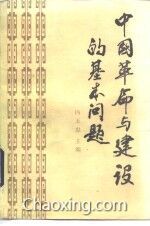 中国革命与建设
的基本问题
主编
Chaoxing.com